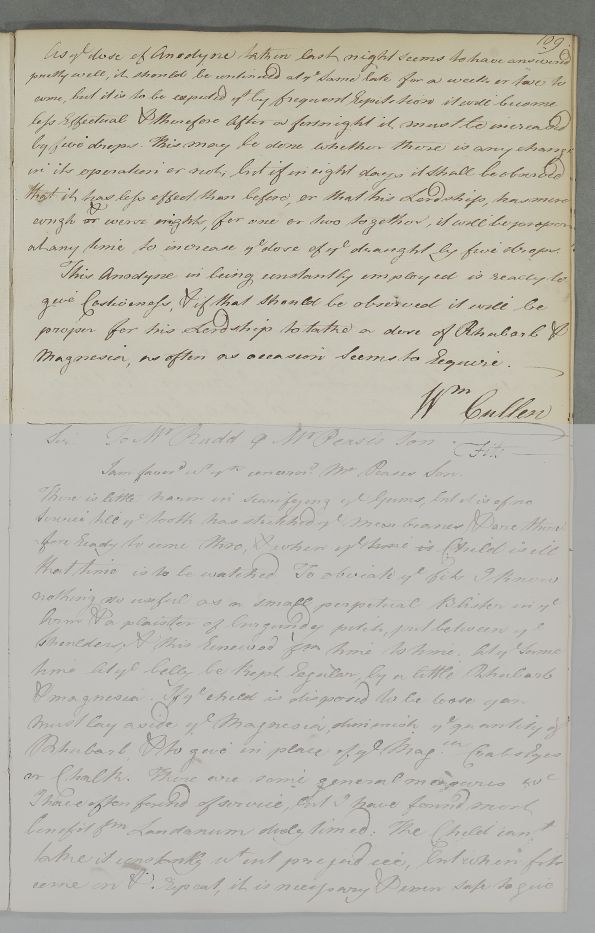 129.
As ye dose of Anodyne taken last night seems to have answered
pretty well, it should be continued at ye same rate for a week or two to
come, but it is to be expected yt by frequent repetition it will become
less Effectual & therefore after a fortnight it must be increased
by five drops. This may be done whether there is any change
in its operation or not, but if in eight days it shall be observed
that it has less effect than before, or that his Lordship, has more
cough or worse nights, for one or two together, it will be proper
at any time to increase ye dose of ye draught by five drops.
This Anodyne in being constantly employed is ready to
give Costiveness, & if that should be observed it will be
proper for his Lordship to take a dose of Rhubarb &
Magnesia, as often as occasion seems to Require.
Wm Cullen
Sir. To Mr Rudd Mr Peases Son.
Fits
I am favord wt yrs concerng Mr Peases Son.
There is little harm in scarifying ye Gums, but it is of no
service till ye tooth has stretched ye membranes & are there
fore ready to come thro, & when ye Child is ill
that time is to be watched. To obviate ye fits I know
nothing so useful as a small perpetual Blister in ye
arm & a plaister of burgundy pitch, put between ye
shoulders, & this Renewed fm time to time. At ye same
time let ye belly be kept Regular, by a little Rhubarb
& magnesia. If ye child is disposed to be loose you
must lay aside ye Magnesia, diminish ye quantity of
Rhubarb, & to give in place of ye Mag Crabs Eyes
or Chalk. There are some general measures wc
I have often found of service, but I have found most
benefit fm Laudanum duly timed: The Child cant
take it constantly wt out prejudice, but when fits
come on & repeat, it is necessary & even safe to give